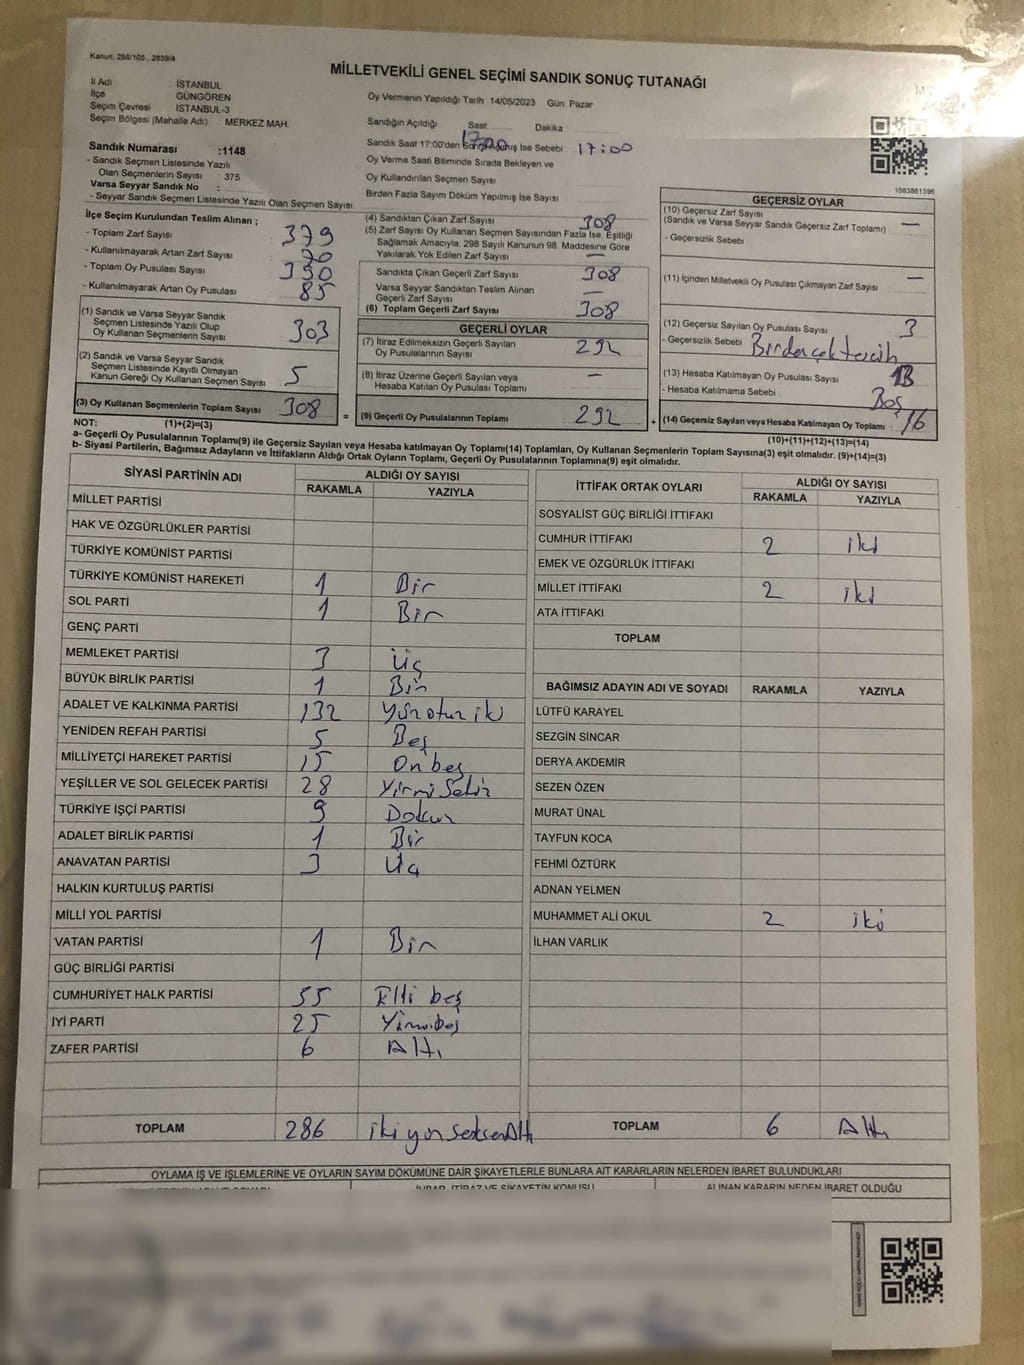 Kanun: 298/105 , 2839/4
MİLLETVEKİLİ GENEL SEÇİMİ SANDIK SONUÇ TUTANAĞI
İl Adı İSTANBUL
İlçe GÜNGÖREN
Seçim Çevresi İSTANBUL-3
Seçim Bölgesi (Mahalle Adı) MERKEZ MAH.
Oy Vermenin Yapıldığı Tarih 14/05/2023 Gün Pazar
Sandığın Açıldığı Saat Dakika
17:00
Sandık Saat 17:00'den Sonra Açılmış İse Sebebi 17:00
Oy Verme Saati Bitiminde Sırada Bekleyen ve
Oy Kullandırılan Seçmen Sayısı
Birden Fazla Sayım Döküm Yapılmış İse Sayısı
Sandık Numarası :1148
- Sandık Seçmen Listesinde Yazılı
Olan Seçmenlerin Sayısı 375
Varsa Seyyar Sandık No :
- Seyyar Sandık Seçmen Listesinde Yazılı Olan Seçmen Sayısı
1083861396
İlçe Seçim Kurulundan Teslim Alınan ;
- Toplam Zarf Sayısı 379
- Kullanılmayarak Artan Zarf Sayısı 70
- Toplam Oy Pusulası Sayısı 390
- Kullanılmayarak Artan Oy Pusulası 85
(1) Sandık ve Varsa Seyyar Sandık
Seçmen Listesinde Yazılı Olup
Oy Kullanan Seçmenlerin Sayısı 303
(2) Sandık ve Varsa Seyyar Sandık
Seçmen Listesinde Kayıtlı Olmayan
Kanun Gereği Oy Kullanan Seçmen Sayısı 5
(3) Oy Kullanan Seçmenlerin Toplam Sayısı 308
(1)+(2)=(3)
(4) Sandıktan Çıkan Zarf Sayısı 308
(5) Zarf Sayısı Oy Kullanan Seçmen Sayısından Fazla İse, Eşitliği
Sağlamak Amacıyla, 298 Sayılı Kanunun 98. Maddesine Göre
Yakılarak Yok Edilen Zarf Sayısı —
Sandıkta Çıkan Geçerli Zarf Sayısı 308
Varsa Seyyar Sandıktan Teslim Alınan
Geçerli Zarf Sayısı —
(6) Toplam Geçerli Zarf Sayısı 308
GEÇERLİ OYLAR
(7) İtiraz Edilmeksizin Geçerli Sayılan
Oy Pusulalarının Sayısı 292
(8) İtiraz Üzerine Geçerli Sayılan veya
Hesaba Katılan Oy Pusulası Toplamı —
= (9) Geçerli Oy Pusulalarının Toplamı 292 +
GEÇERSİZ OYLAR
(10) Geçersiz Zarf Sayısı
(Sandık ve Varsa Seyyar Sandık Geçersiz Zarf Toplamı) —
- Geçersizlik Sebebi
(11) İçinden Milletvekili Oy Pusulası Çıkmayan Zarf Sayısı —
(12) Geçersiz Sayılan Oy Pusulası Sayısı 3
- Geçersizlik Sebebi Birden çok tercih
(13) Hesaba Katılmayan Oy Pusulası Sayısı 13
- Hesaba Katılmama Sebebi Boş
(14) Geçersiz Sayılan veya Hesaba Katılmayan Oy Toplamı 16
(10)+(11)+(12)+(13)=(14)
NOT:
a- Geçerli Oy Pusulalarının Toplamı(9) ile Geçersiz Sayılan veya Hesaba katılmayan Oy Toplamı(14) Toplamları, Oy Kullanan Seçmenlerin Toplam Sayısına(3) eşit olmalıdır. (9)+(14)=(3)
b- Siyasi Partilerin, Bağımsız Adayların ve İttifakların Aldığı Ortak Oyların Toplamı, Geçerli Oy Pusulalarının Toplamına(9) eşit olmalıdır.
SİYASİ PARTİNİN ADI ALDIĞI OY SAYISI
RAKAMLA YAZIYLA
MİLLET PARTİSİ
HAK VE ÖZGÜRLÜKLER PARTİSİ
TÜRKİYE KOMÜNİST PARTİSİ
TÜRKİYE KOMÜNİST HAREKETİ 1 Bir
SOL PARTİ 1 Bir
GENÇ PARTİ
MEMLEKET PARTİSİ 3 Üç
BÜYÜK BİRLİK PARTİSİ 1 Bir
ADALET VE KALKINMA PARTİSİ 132 Yüz otuz iki
YENİDEN REFAH PARTİSİ 5 Beş
MİLLİYETÇİ HAREKET PARTİSİ 15 On beş
YEŞİLLER VE SOL GELECEK PARTİSİ 28 Yirmi Sekiz
TÜRKİYE İŞÇİ PARTİSİ 9 Dokuz
ADALET BİRLİK PARTİSİ 1 Bir
ANAVATAN PARTİSİ 3 Üç
HALKIN KURTULUŞ PARTİSİ
MİLLİ YOL PARTİSİ
VATAN PARTİSİ 1 Bir
GÜÇ BİRLİĞİ PARTİSİ
CUMHURİYET HALK PARTİSİ 55 Elli beş
İYİ PARTİ 25 Yirmi beş
ZAFER PARTİSİ 6 Altı
TOPLAM 286 iki yüz seksen Altı
İTTİFAK ORTAK OYLARI ALDIĞI OY SAYISI
RAKAMLA YAZIYLA
SOSYALİST GÜÇ BİRLİĞİ İTTİFAKI
CUMHUR İTTİFAKI 2 iki
EMEK VE ÖZGÜRLÜK İTTİFAKI
MİLLET İTTİFAKI 2 iki
ATA İTTİFAKI
TOPLAM
BAĞIMSIZ ADAYIN ADI VE SOYADI RAKAMLA YAZIYLA
LÜTFÜ KARAYEL
SEZGİN SİNCAR
DERYA AKDEMİR
SEZEN ÖZEN
MURAT ÜNAL
TAYFUN KOCA
FEHMİ ÖZTÜRK
ADNAN YELMEN
MUHAMMET ALİ OKUL 2 iki
İLHAN VARLIK
TOPLAM 6 Altı
OYLAMA İŞ VE İŞLEMLERİNE VE OYLARIN SAYIM DÖKÜMÜNE DAİR ŞİKAYETLERLE BUNLARA AİT KARARLARIN NELERDEN İBARET BULUNDUKLARI
İHBAR, İTİRAZ VE ŞİKAYETİN KONUSU ALINAN KARARIN NEDEN İBARET OLDUĞU